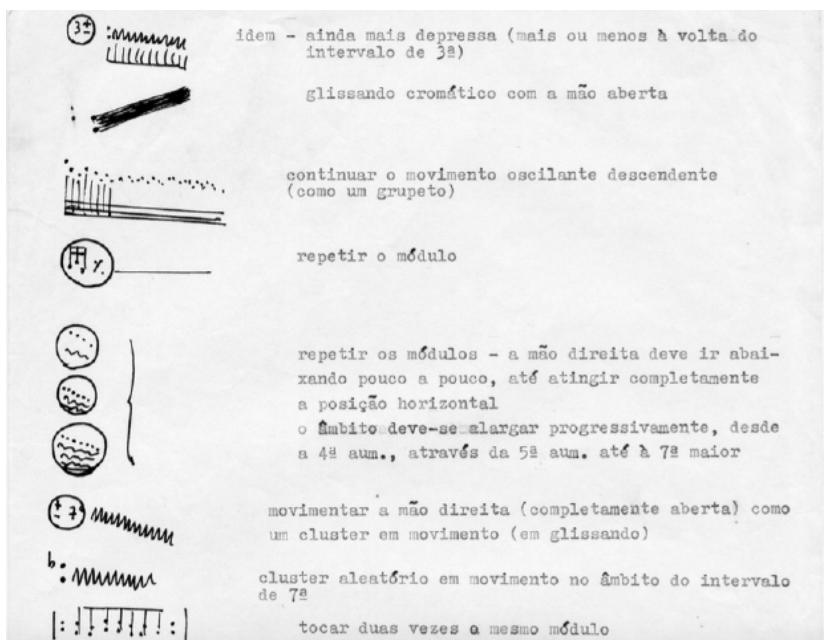 3±
idem - ainda mais depressa (mais ou menos à volta do
intervalo de 3ª)
glissando cromático com a mão aberta
continuar o movimento oscilante descendente
(como um grupeto)
repetir o módulo
repetir os módulos - a mão direita deve ir abai-
xando pouco a pouco, até atingir completamente
a posição horizontal
o âmbito deve-se alargar progressivamente, desde
a 4ª aum., através da 5ª aum. até à 7ª maior
± 7ª
movimentar a mão direita (completamente aberta) como
um cluster em movimento (em glissando)
b
cluster aleatório em movimento no âmbito do intervalo
de 7ª
tocar duas vezes o mesmo módulo